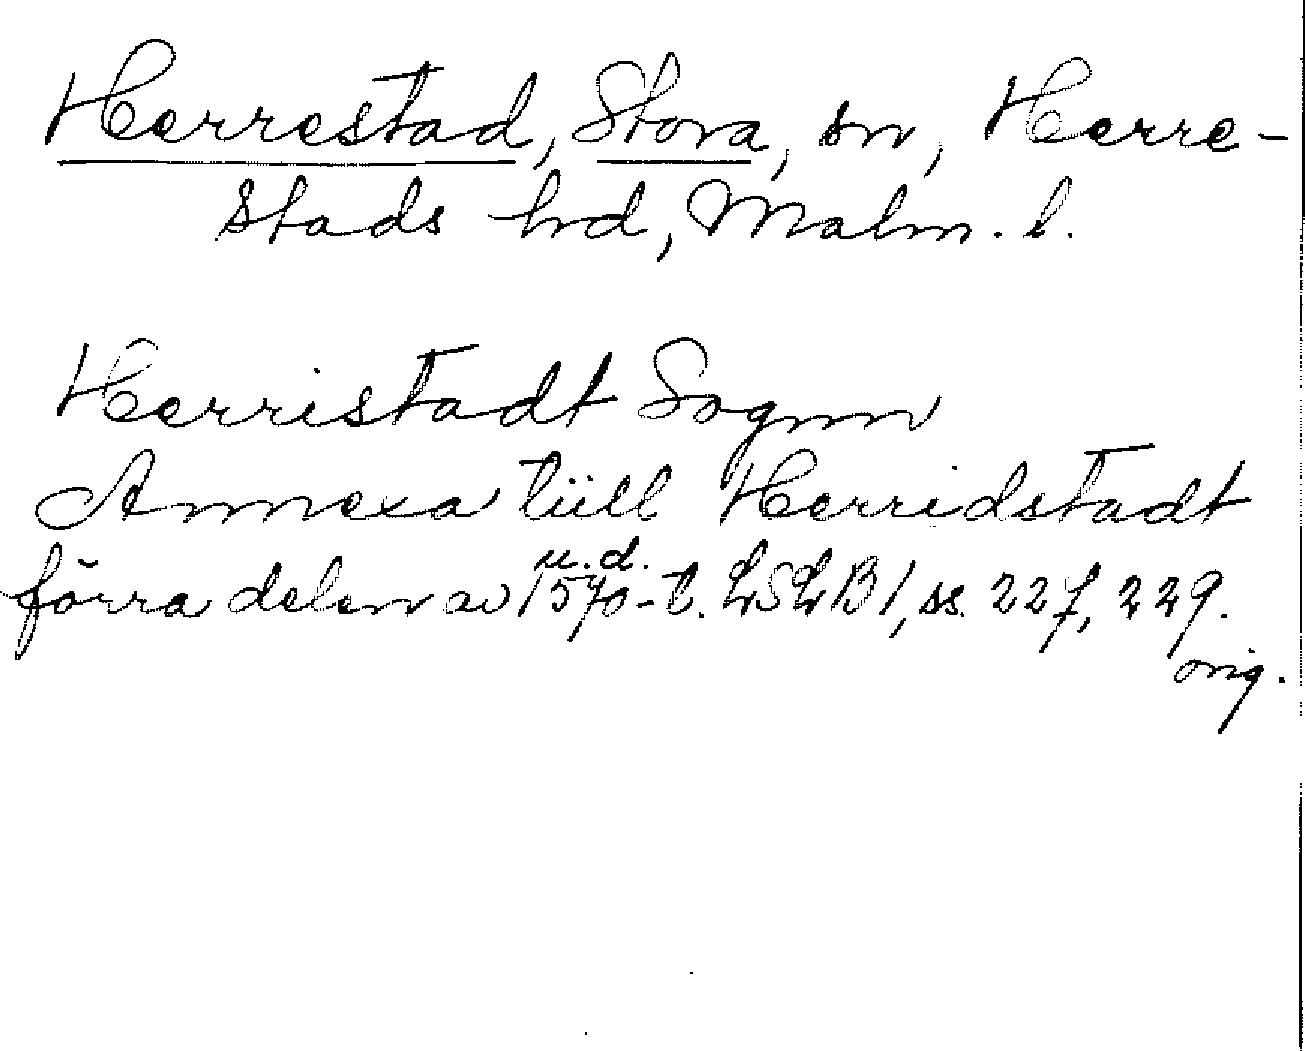 Herrestad, Stora, sn, Herre-
stads hd, Malm. l.
Herristadt Sognn
Annexa tüll Herridstadt
u.d.
förra delen av 1570-t. LSLB1, ss. 227, 229.
orig.